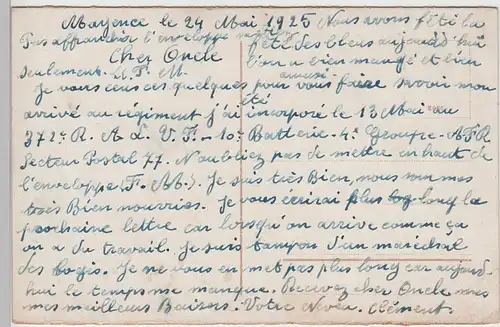 Mayence le 24 Mai 1925 Nous avons fêté la
Pas affranchir l'enveloppe mettre fête des bleus aujourd'hui
Cher Oncle l'on a bien mangé et bien
seulement. F. M. amusé
Je vous ecris ces quelques pour vous faire savoir mon
arrivé au régiment j'ai été incorporé le 13 Mai au
372e R. A. L. V. F. - 10e Batterie. 4e Groupe - A F R
Secteur Postal 77. N'oubliez pas de mettre en haut de
l'enveloppe (F. M.). Je suis très Bien, nous sommes
très Bien nourries. Je vous écrirai plus long la
prochaine lettre car lorsqu'on arrive comme ça
on a du travail. Je suis tampon d'un maréchal
des logis. Je ne vous en met pas plus long car aujourd-
hui le temps me manque. Recevez cher Oncle mes
mes meilleurs Baisers. Votre Neveu. Clément.